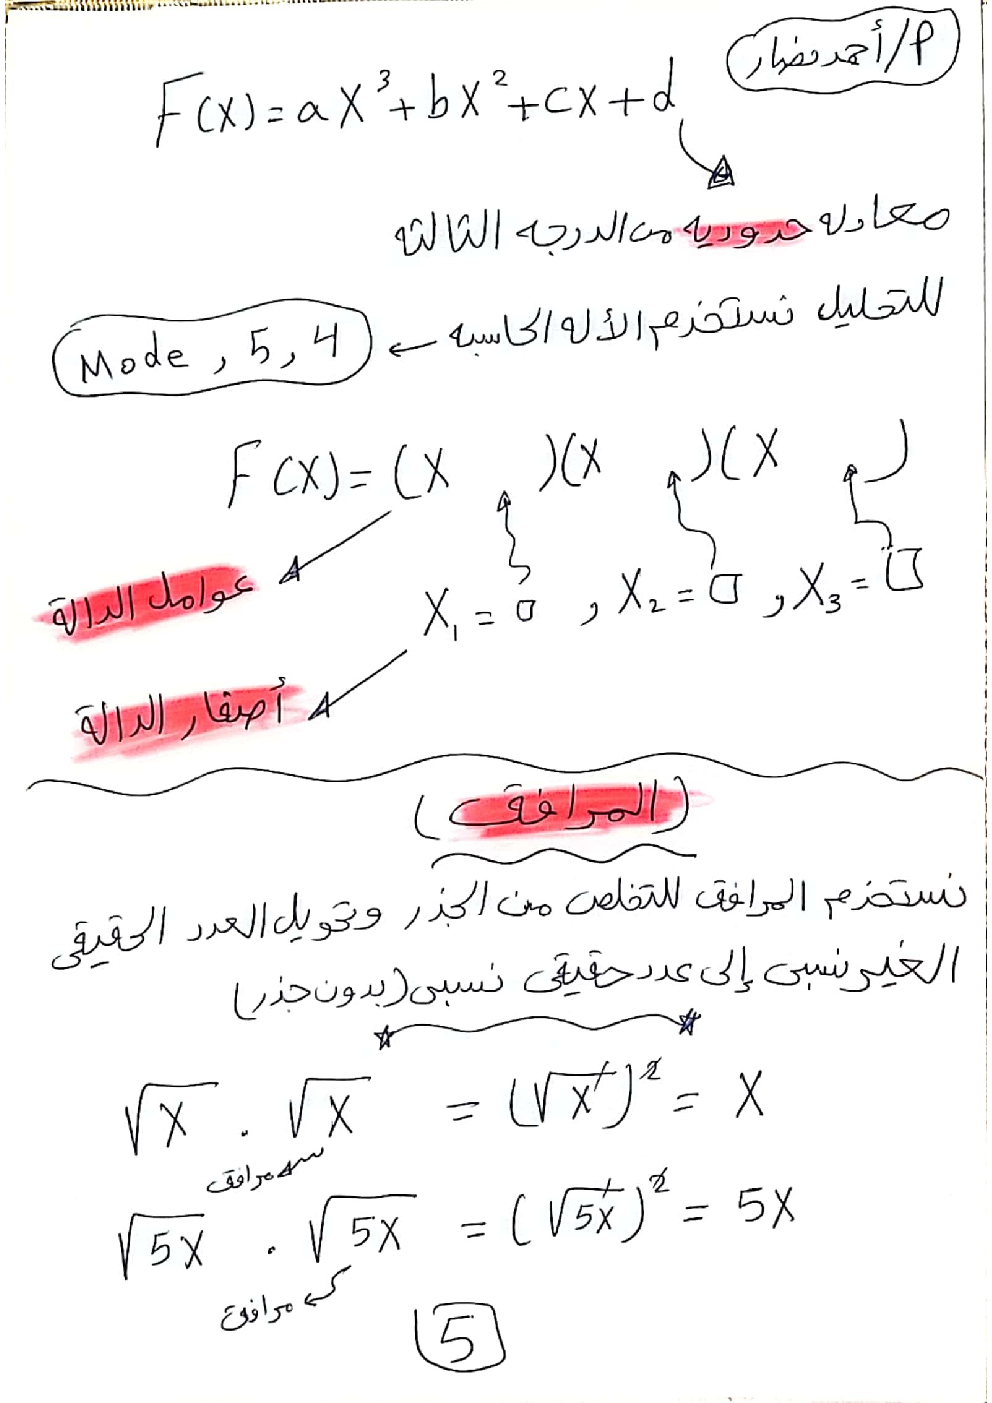 م/أحمد نصار
F(X)=aX³+bX²+cX+d
معادله حدوديه من الدرجه الثالثه
للتحليل نستخدم الأله الحاسبه ← Mode , 5 , 4
F(X)=(X )(X )(X )
X₁=□ , X₂=□ , X₃=□
عوامل الدالة
أصفار الدالة
(المرافق)
نستخدم المرافق للتخلص من الجذر وتحويل العدد الحقيقي
الغير نسبي إلى عدد حقيقي نسبي (بدون جذر)
√X . √X = (√X)² = X
مرافق
√5X . √5X = (√5X)² = 5X
مرافق
5